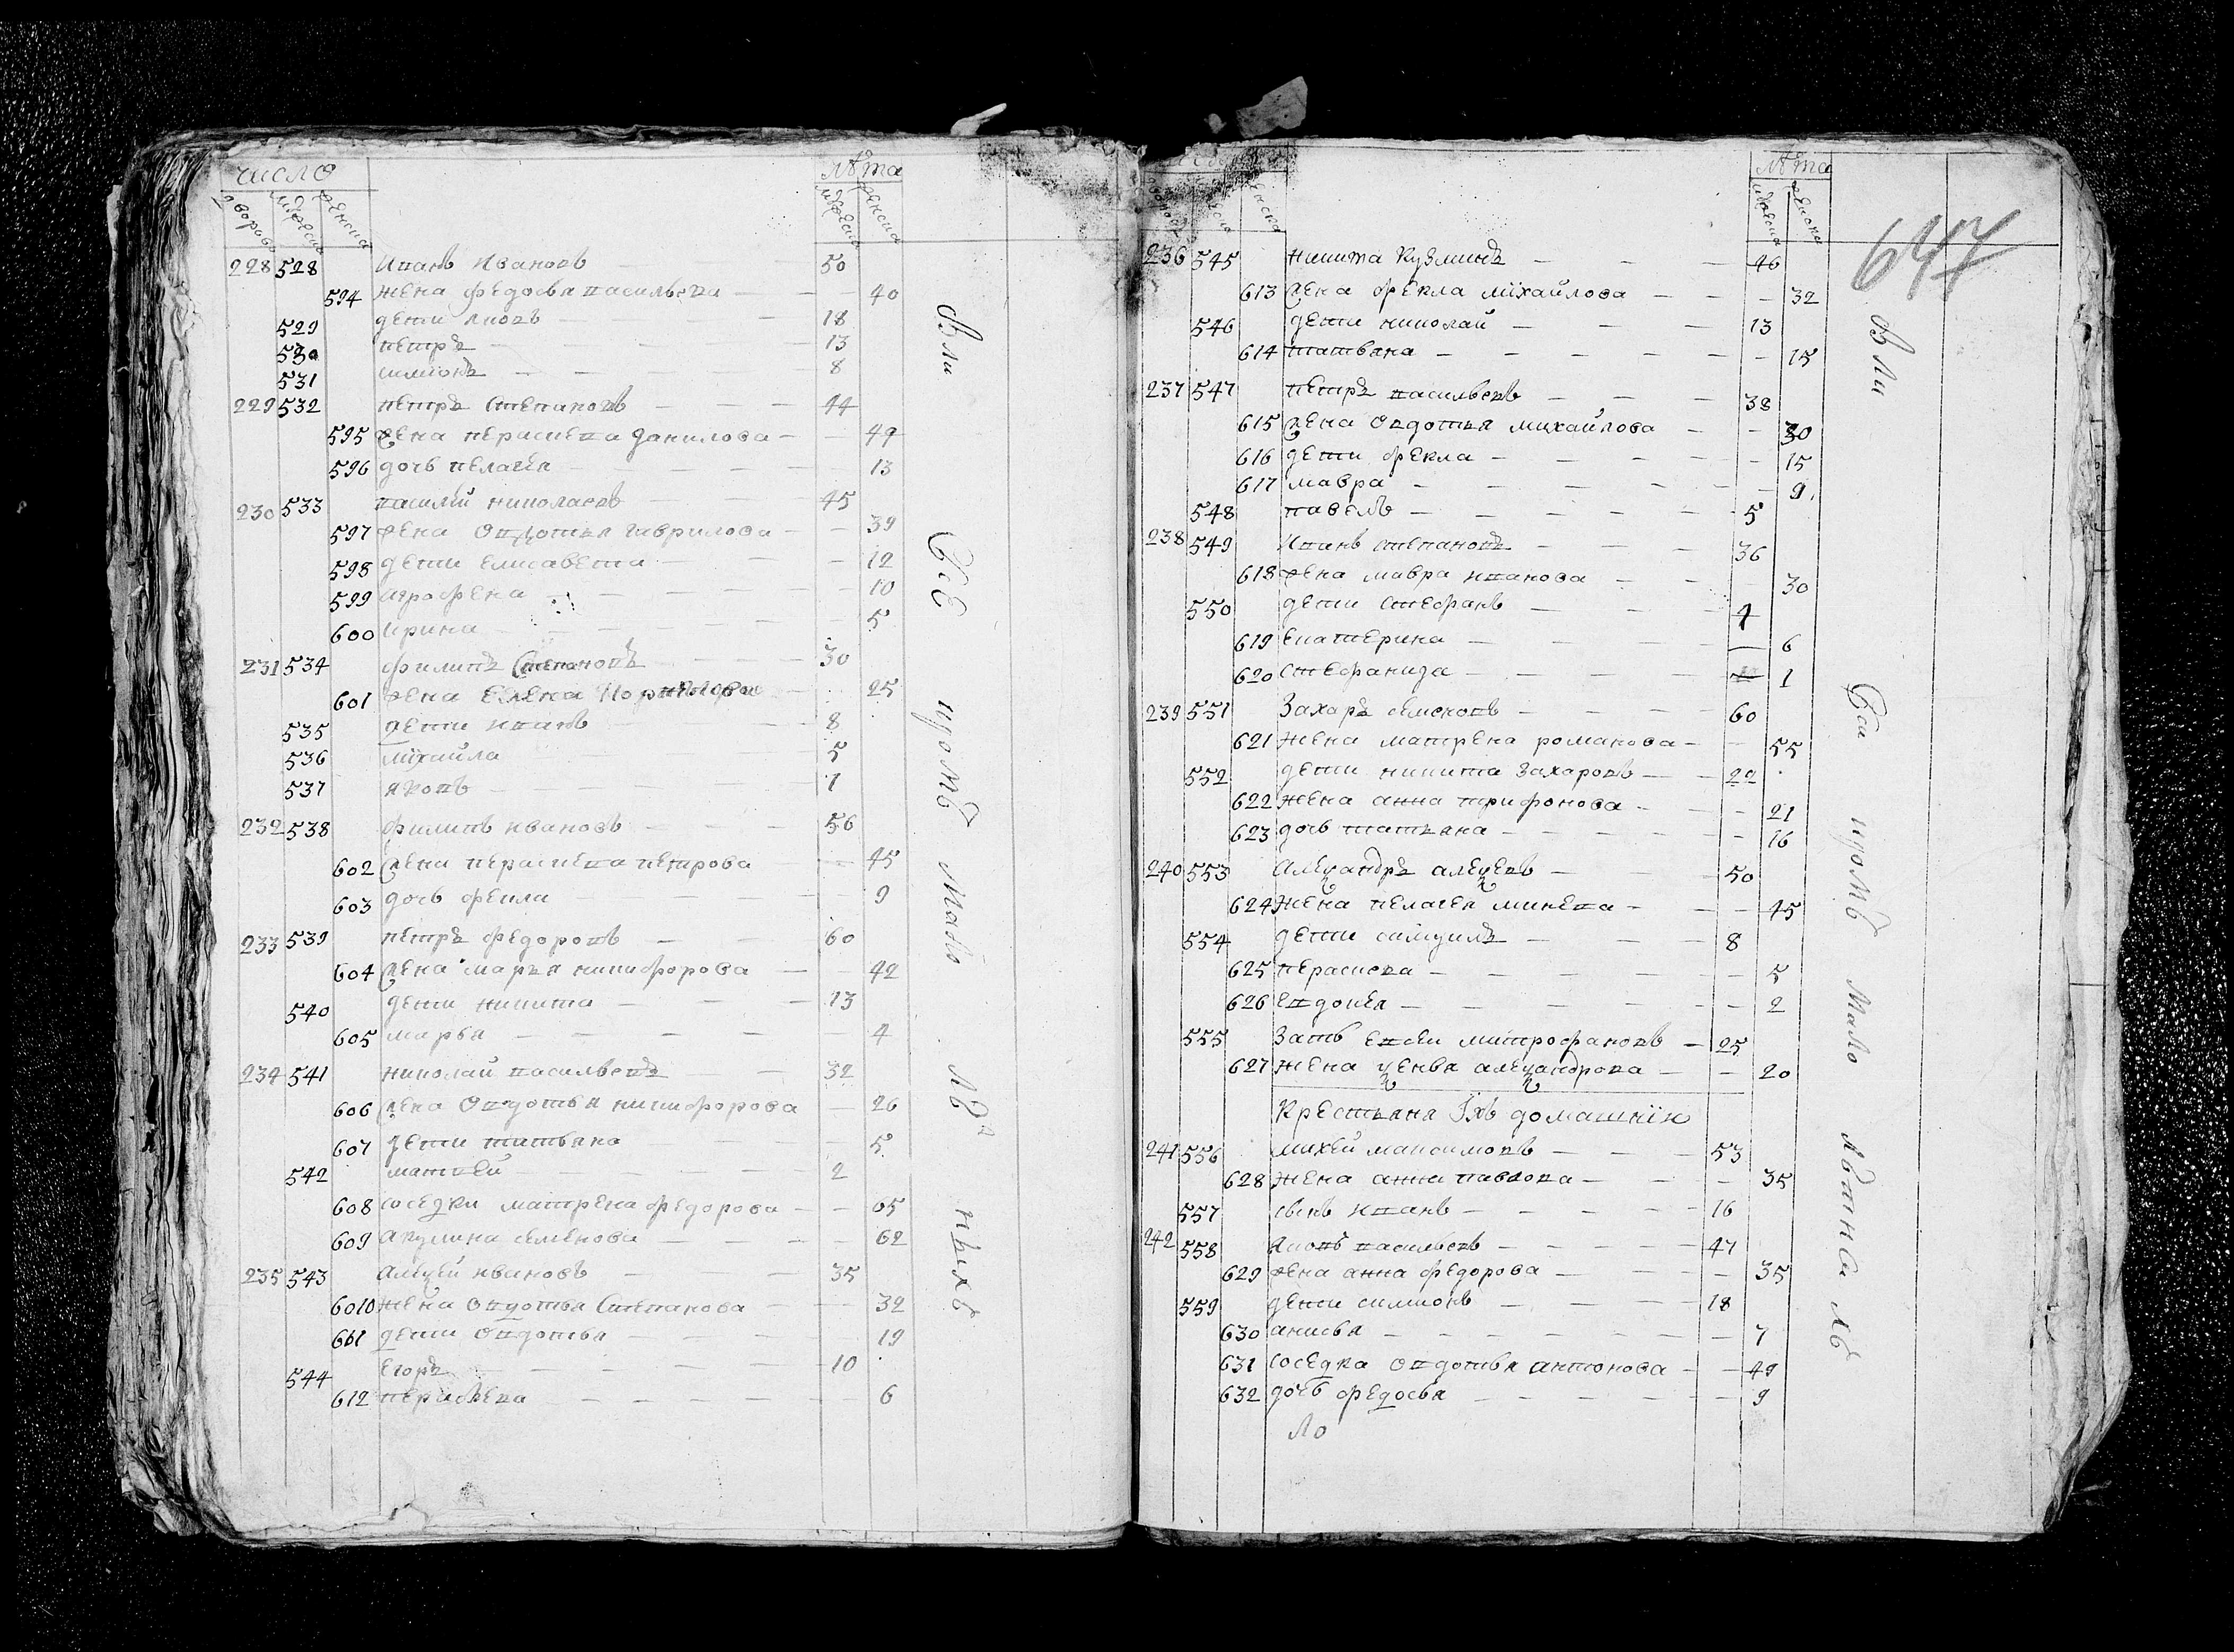 число
лѣта
дворовъ
мужеска
женска
мужеска
женска
228 528 Иванъ Ивановъ — 50
594 жена федосья васильева — 40
529 дети яковъ — 18
530 петръ — 13
531 симионъ — 8
229 532 петръ степановъ — 44
595 жена парасկева данилова — 49
596 дочь пелагея — 13
230 533 василей николаевъ — 45
597 жена овдотья гаврилова — 39
598 дети елисавета — 12
599 агрофена — 10
600 ирина — 5
231 534 филипъ степановъ — 30
601 жена елена — 25
535 дети иванъ — 8
536 михайла — 5
537 яковъ — 1
232 538 филипъ ивановъ — 56
602 жена перасковева петрова — 45
603 дочь фекла — 9
233 539 петръ федоровъ — 60
604 жена марья никифорова — 42
540 дети никита — 13
605 марья — 4
234 541 николай васильевъ — 32
606 жена овдотья никифорова — 26
607 дети татьяна — 5
542 матвей — 2
608 соседки матрена федорова — 65
609 акулина семенова — 62
235 543 алеѯей ивановъ — 35
6010 жена овдотья степанова — 32
611 дети овдотья — 19
544 егоръ — 10
612 перасковева — 6
Вси исповѣдь мало лѣтныхъ
647
236 545 никита кузминъ — 46
613 жена фекла михайлова — 32
546 дети николай — 13
614 татьяна — 15
237 547 петръ васильевъ — 38
615 жена овдотья михайлова — 30
616 дети фекла — 15
617 мавра — 9
548 павелъ — 5
238 549 Иванъ степановъ — 36
618 жена мавра иванова — 30
550 дети стефанъ — 4
619 екатерина — 6
620 стефанида — 1
239 551 Захаръ семеновъ — 60
621 жена матрена романова — 55
552 дети никита захаровъ — 22
622 жена анна трифонова — 21
623 дочь татьяна — 16
240 553 Алеѯандръ алеѯеевъ — 50
624 жена пелагея минеева — 45
554 дети самуилъ — 8
625 перасковева — 5
626 евдокея — 2
555 Зять евсеи митрофановъ — 25
627 жена ѯенья алеѯандрова — 20
Крестьяня ихъ домашнїя
241 556 михей максимовъ — 53
628 жена анна павлова — 35
557 сынъ иванъ — 16
242 558 яковъ васильевъ — 47
629 жена анна федорова — 35
559 дети симионъ — 18
630 анисья — 7
631 соседка овдотья антонова — 49
632 дочь федосья — 9
ло